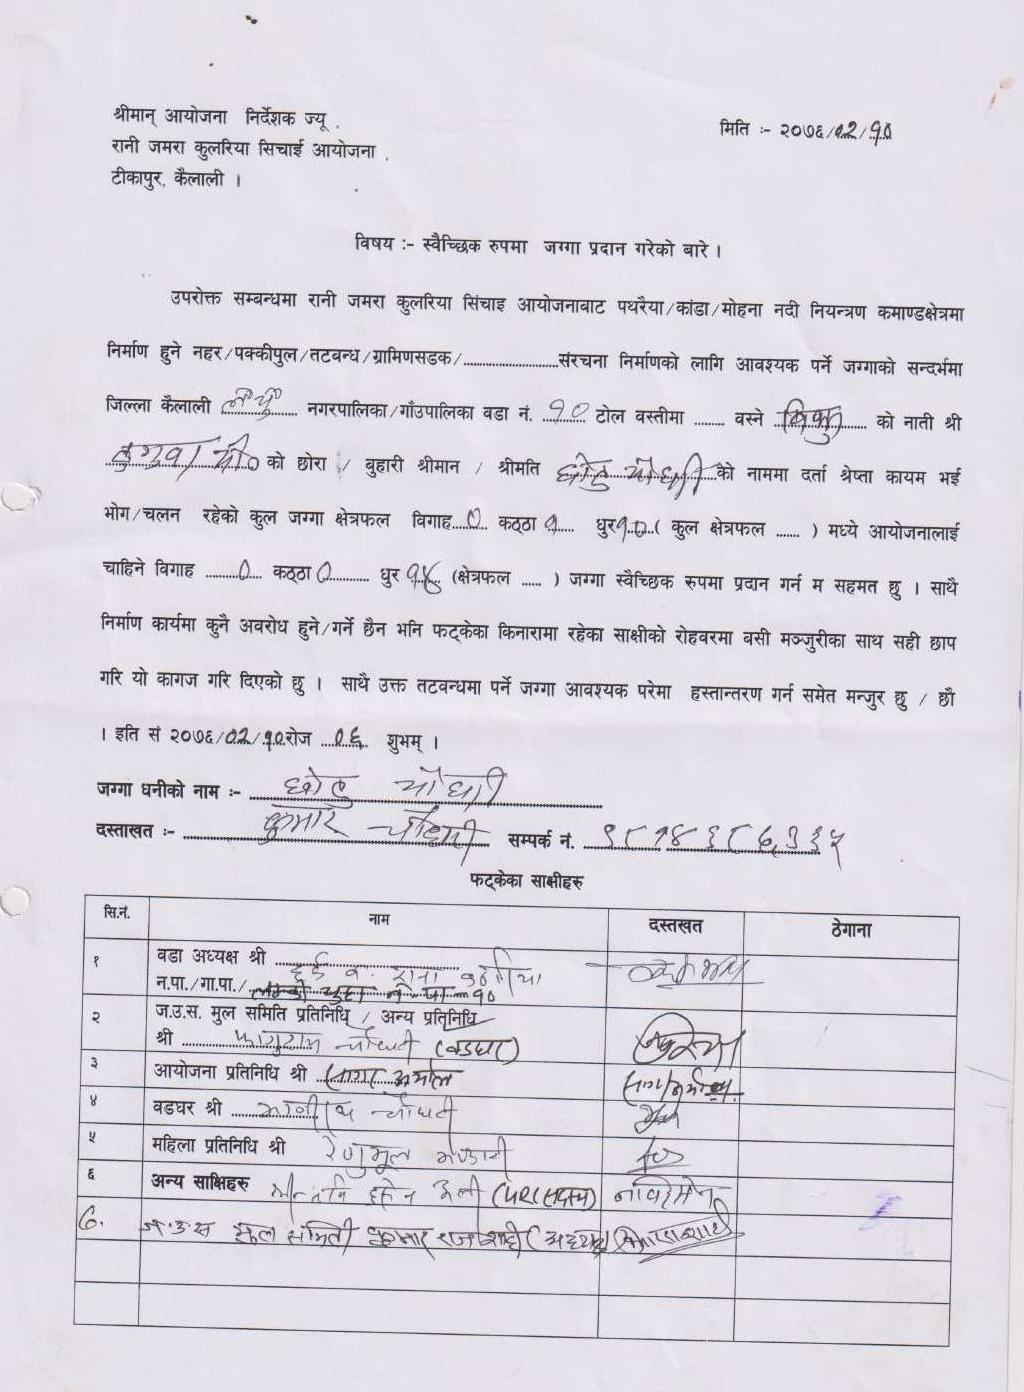 श्रीमान् आयोजना निर्देशक ज्यू ,
मिति :- २०७६/०२/१०
रानी जमरा कुलरिया सिचाई आयोजना ,
टीकापुर, कैलाली ।
विषय :- स्वैच्छिक रुपमा जग्गा प्रदान गरेको बारे ।
उपरोक्त सम्बन्धमा रानी जमरा कुलरिया सिंचाइ आयोजनाबाट पथरैया/कांडा/मोहना नदी नियन्त्रण कमाण्डक्षेत्रमा
निर्माण हुने नहर/पक्कीपुल/तटबन्ध/ग्रामिणसडक/............................संरचना निर्माणको लागि आवश्यक पर्ने जग्गाको सन्दर्भमा
जिल्ला कैलाली नगरपालिका/गाँउपालिका वडा नं. १० टोल वस्तीमा ........ वस्ने को नाती श्री
को छोरा / बुहारी श्रीमान / श्रीमति छोटु चौधरी को नाममा दर्ता श्रेष्ता कायम भई
भोग/चलन रहेको कुल जग्गा क्षेत्रफल विगाह ० कठ्ठा १ धुर १० ( कुल क्षेत्रफल ...... ) मध्ये आयोजनालाई
चाहिने विगाह ० कठ्ठा ० धुर (क्षेत्रफल ..... ) जग्गा स्वैच्छिक रुपमा प्रदान गर्न म सहमत छु । साथै
निर्माण कार्यमा कुनै अवरोध हुने/गर्ने छैन भनि फट्केका किनारामा रहेका साक्षीको रोहवरमा बसी मञ्जुरीका साथ सही छाप
गरि यो कागज गरि दिएको छु । साथै उक्त तटबन्धमा पर्ने जग्गा आवश्यक परेमा हस्तान्तरण गर्न समेत मन्जुर छु / छौ
। इति सं २०७६/०२/१० रोज ०६ शुभम् ।
जग्गा धनीको नाम :- छोटु चौधरी
दस्ताखत :- कुमार चौधरी सम्पर्क नं.
फट्केका साक्षीहरु
सि.नं. नाम दस्तखत ठेगाना
१ वडा अध्यक्ष श्री
न.पा./गा.पा./ न. पा १०
२ ज.उ.स. मुल समिति प्रतिनिधि / अन्य प्रतिनिधि
श्री चौधरी (वडघर)
३ आयोजना प्रतिनिधि श्री
४ वडघर श्री चौधरी
५ महिला प्रतिनिधि श्री
६ अन्य साक्षिहरु
७. ज.उ.स मुल समिती